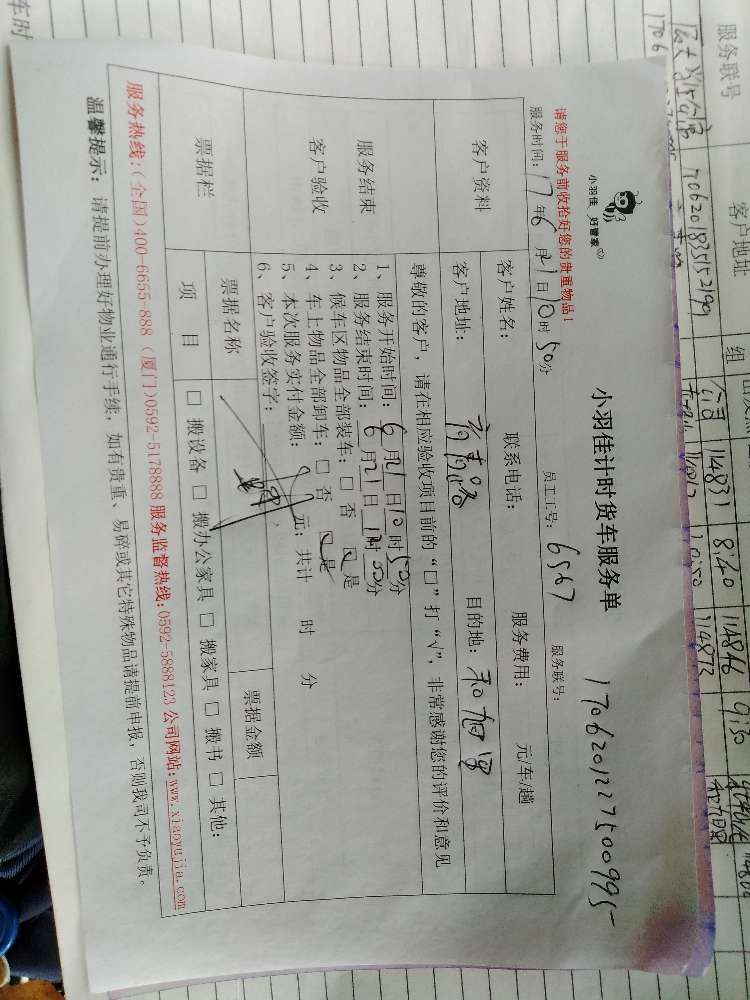 小羽佳 好管家
小羽佳计时货车服务单
1706201227500995
请您于服务前收拾好您的贵重物品!
服务时间: 17年6月21日10时50分 员工工号: 6567 服务联号:
客户资料
客户姓名: 联系电话: 服务费用: 元/车/趟
客户地址: 目的地:
服务结束
客户验收
尊敬的客户, 请在相应验收项目前的“□”打“√”, 非常感谢您的评价和意见
1、服务开始时间: 6月21日10时50分
2、服务结束时间: 6月21日11时50分
3、候车区物品全部装车: □ 否 ☑ 是
4、车上物品全部卸车: □ 否 ☑ 是
5、本次服务实付金额: 元; 共计 时 分
6、客户验收签字:
票据栏
票据名称 票据金额
项 目 □ 搬设备 □ 搬办公家具 □ 搬家具 □ 搬书 □ 其他:
服务热线:(全国)400-6655-888 (厦门)0592-5178888 服务监督热线:0592-5888123 公司网站:www.xiaoyujia.com
温馨提示: 请提前办理好物业通行手续, 如有贵重、易碎或其它特殊物品请提前申报, 否则我司不予负责。
服务联号 客户地址
114831 8:40 114846 9:30
114872
车时